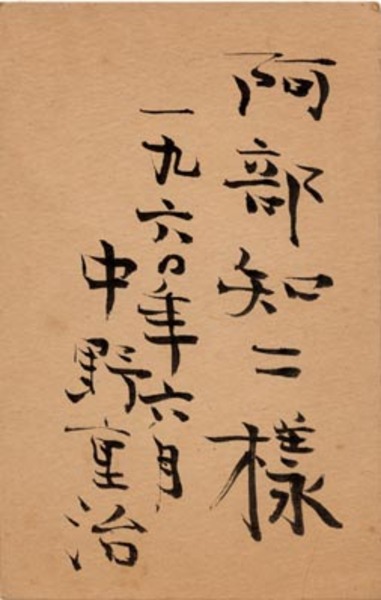 阿部知二様
一九六〇年六月
中野重治